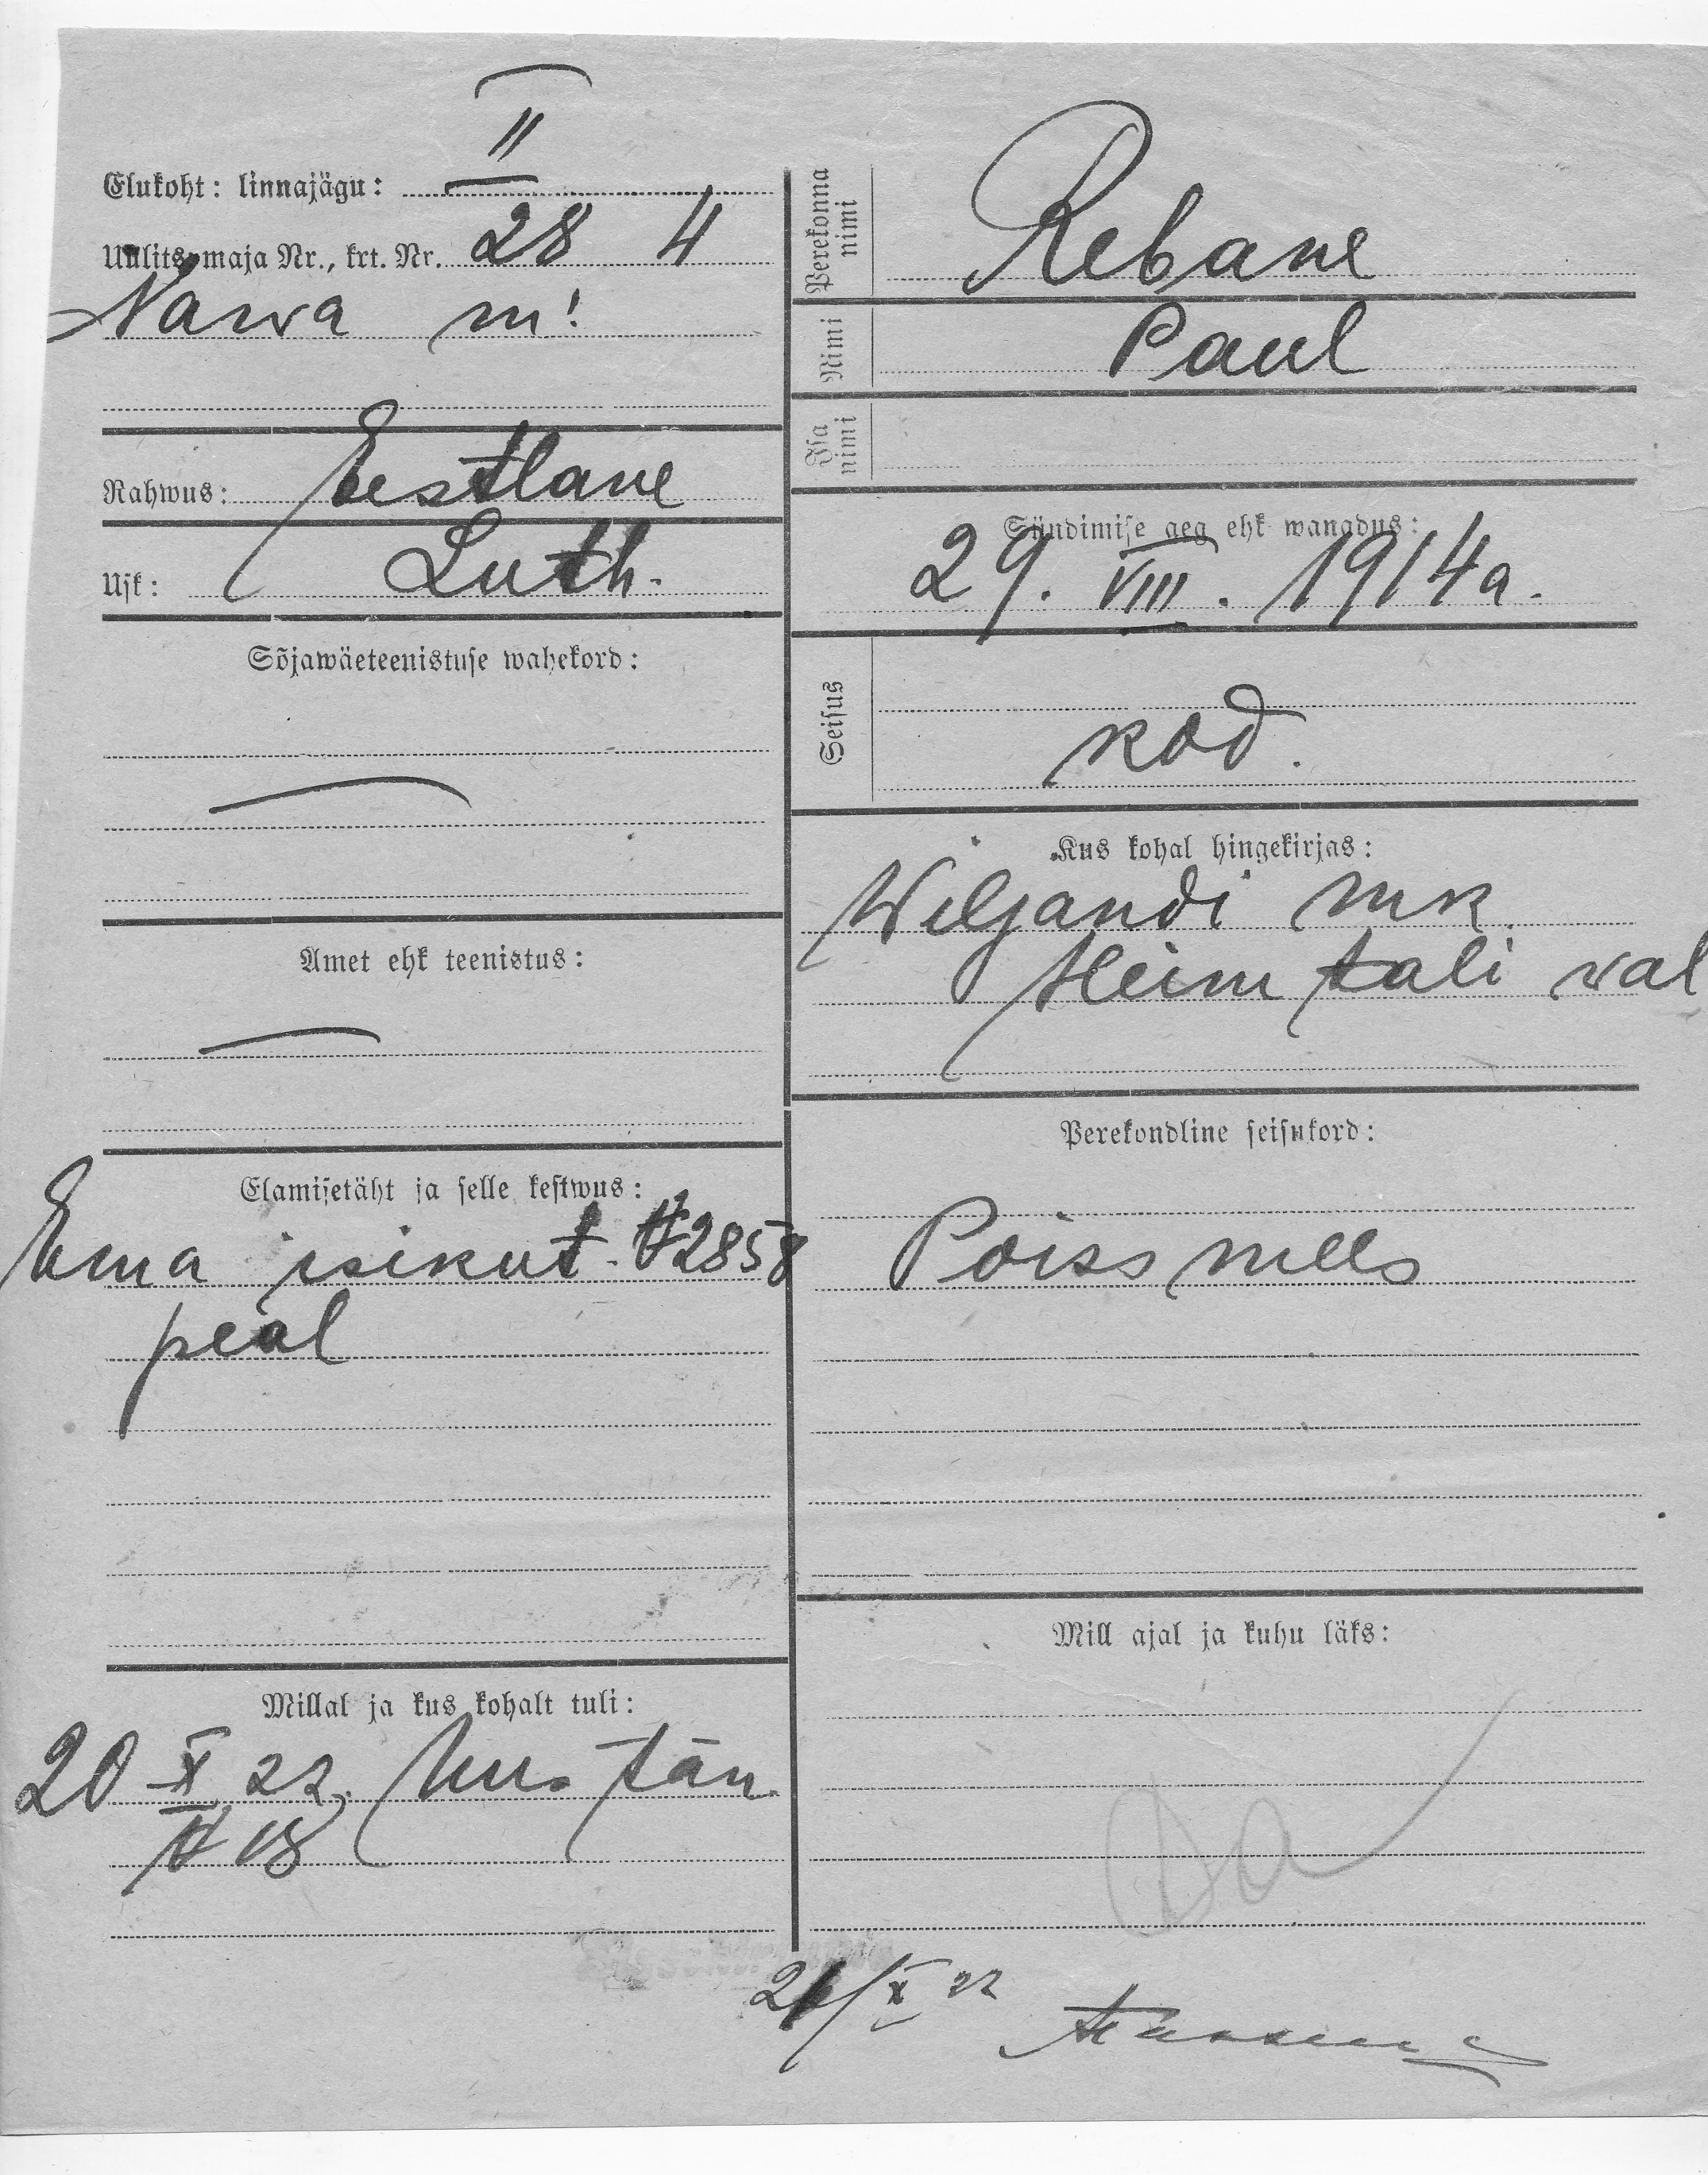 II
Elukoht: linnajägu:
Uulits, maja Nr., krt. Nr. 28 4
Narva m!
Rahwus: Eestlane
Usk: Luth.
Sõjawäeteenistuse wahekord:
Amet ehk teenistus:
Elamisetäht ja selle kestwus:
Ema isikut. № 2858
peal
Millal ja kus kohalt tuli:
20 X 22. Uus tän.
№ 18
Perekonna nimi
Rebane
Nimi
Paul
Isa nimi
Sündimise aeg ehk wanadus:
29. VIII. 1914 a.
Seisus
kod.
Kus kohal hingekirjas:
Wiljandi mk.
Heimtali val
Perekondline seisukord:
Poissmees
Mill ajal ja kuhu läks:
X 22